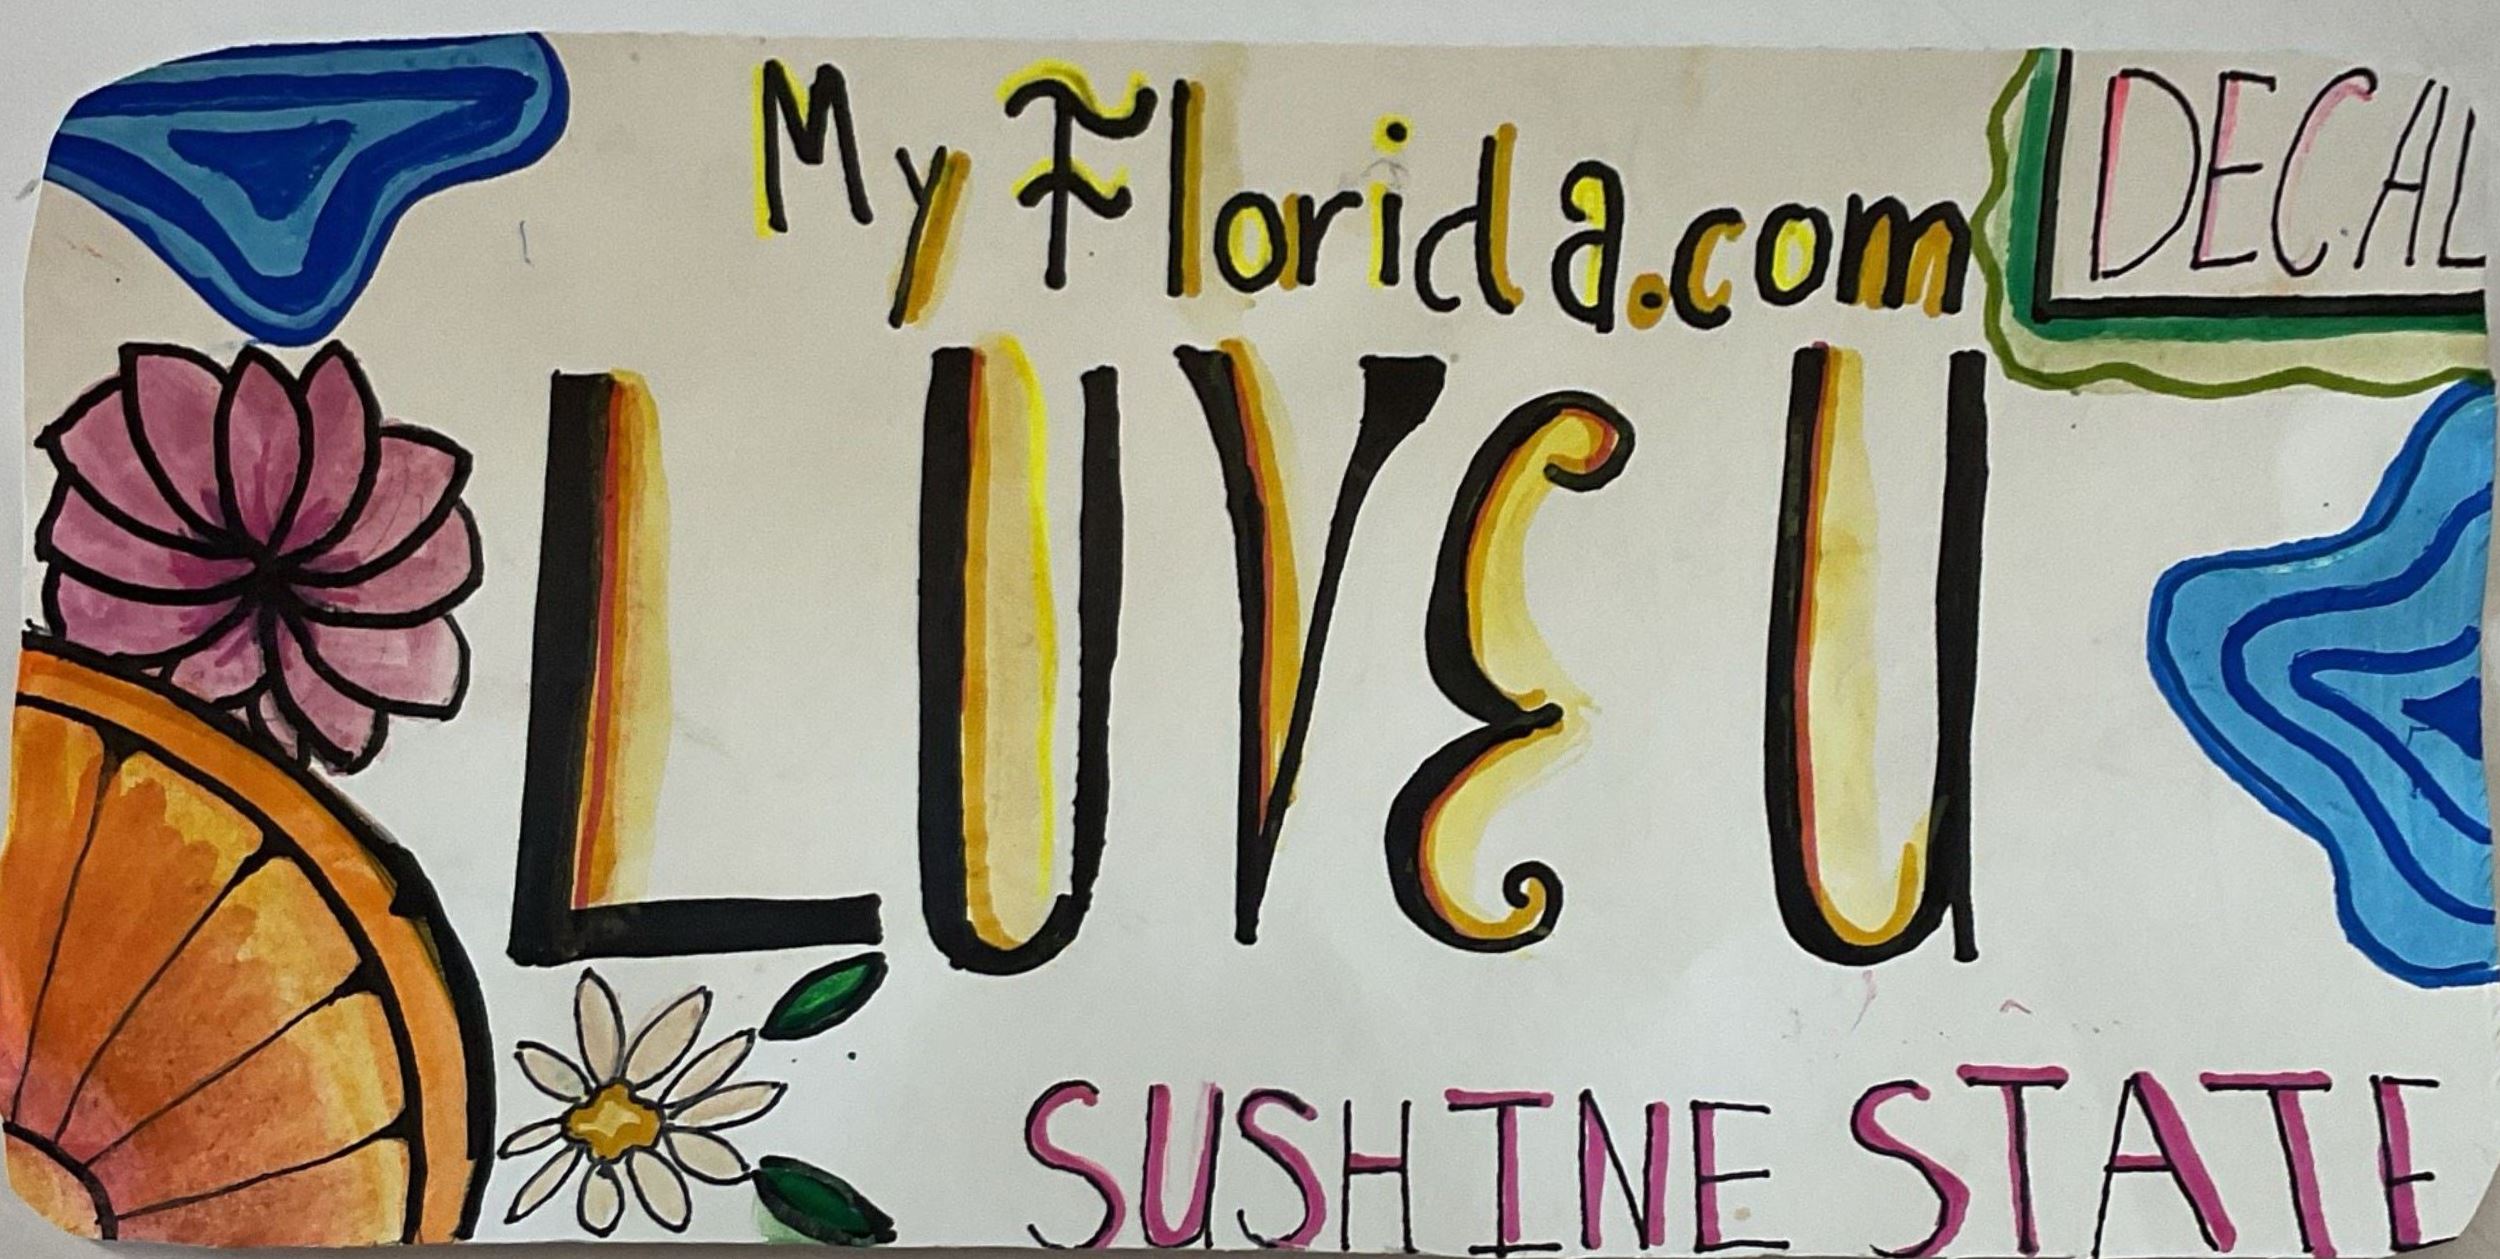 MyFlorida.com
DECAL
LUVE U
SUSHINE STATE